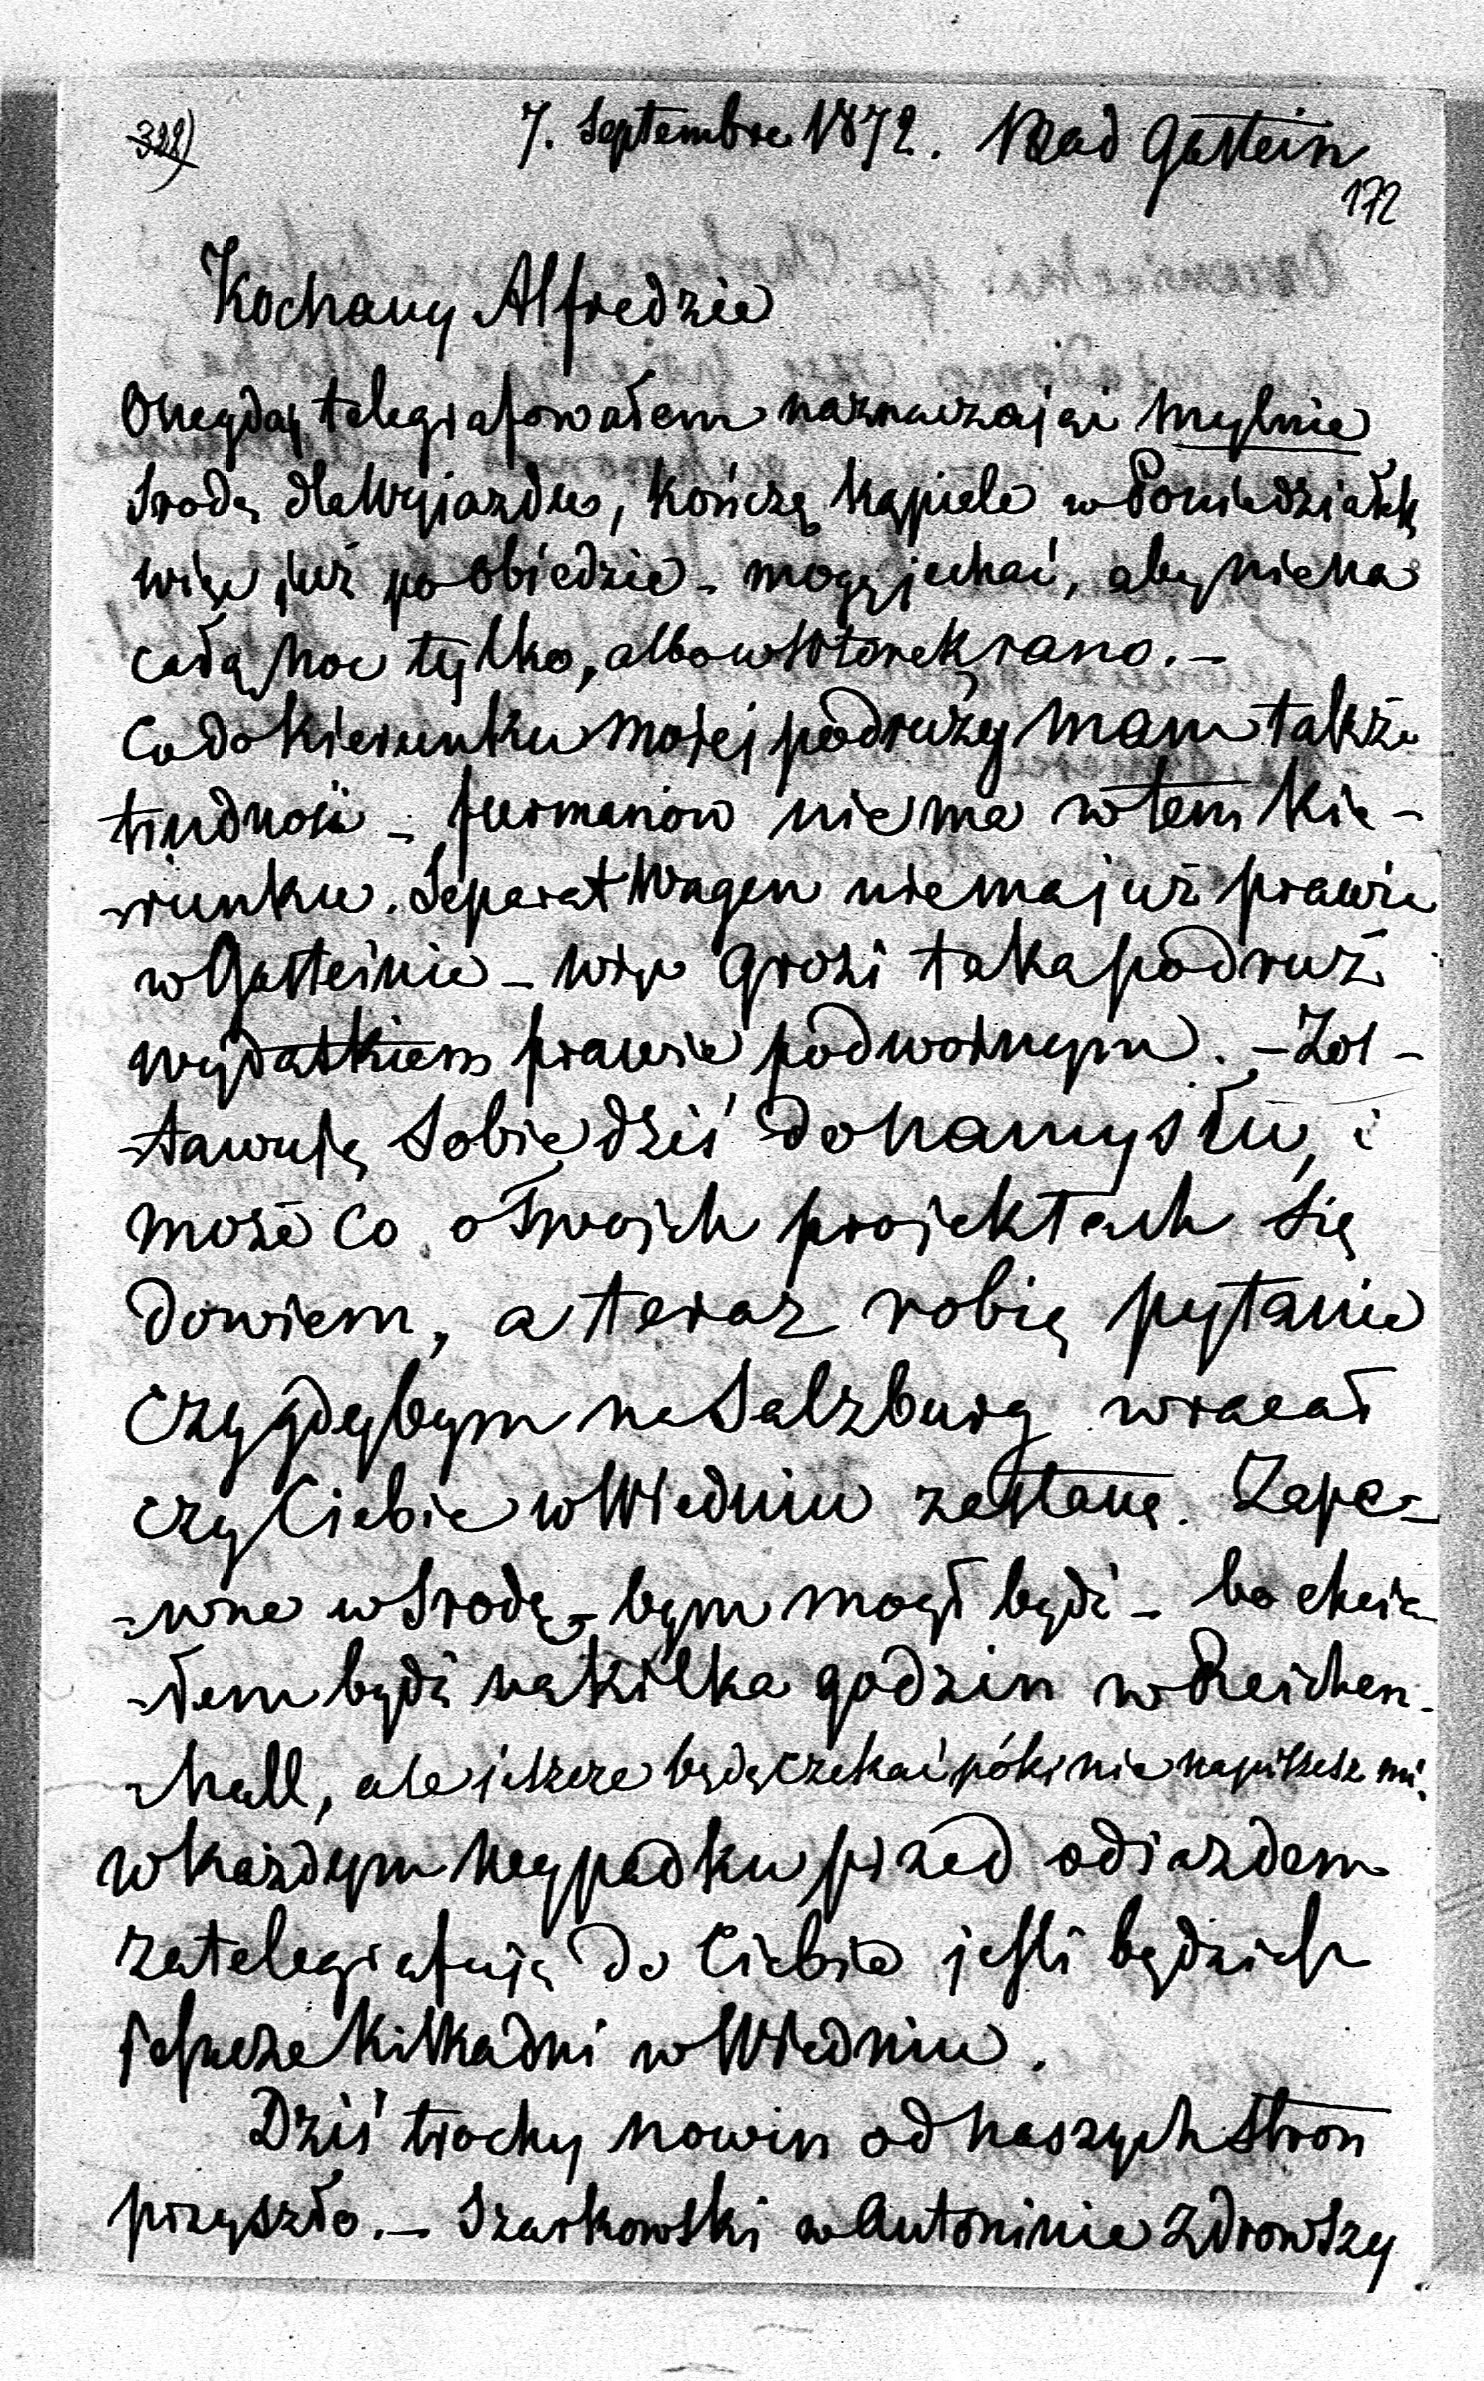 322)
7. Septembre 1872. Bad Gastein
172
Kochany Alfredzie
Onegdaj telegrafowałem naznaczając mylnie
Srodę dla Wyjazdu, kończę kąpiele w Poniedziałek
więc już po obiedzie - mogę jechać, aby nie na
całą noc tylko, albo w Wtorek rano. -
Co do kierunku mojej podruży mam także
trudność - furmanow nie ma w tem kie-
-runku. Separat Wagen nie ma już prawie
w Gasteinie - więc grozi taka podruż
wydatkiem prawie podwoinym. - Zos-
-tawuję sobie dziś do namysłu, i
może co o Twoich projektach się
dowiem, a teraz robię pytanie
czy gdybym na Salzburg wracał
czy Ciebie w Wiedniu zastanę. Zape-
-wne w Srodę - bym mogł bydź - bo chcia-
-łem bydź na kilka godzin w Reichen-
-hall, ale jeszcze będę czekać póki nie napiszesz mi.
w każdym wypadku przed odjazdem
zatelegrafuję do Ciebie jeśli będziesz
jeszcze kilka dni w Wiedniu.
Dziś trochy nowin od naszych stron
przyszło. - Szarkowski w Antoninie zdrowszy